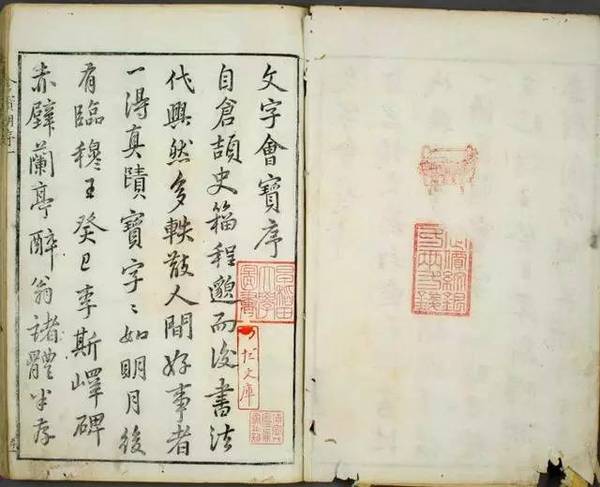 文字會寶序
自倉頡史籀程邈而後書法
代興然多軼散人間好事者
一得真蹟寶字〻如明月後
有臨穆王癸巳李斯嶧碑
赤壁蘭亭醉翁諸體半存
早稲田大學圖書
文庫